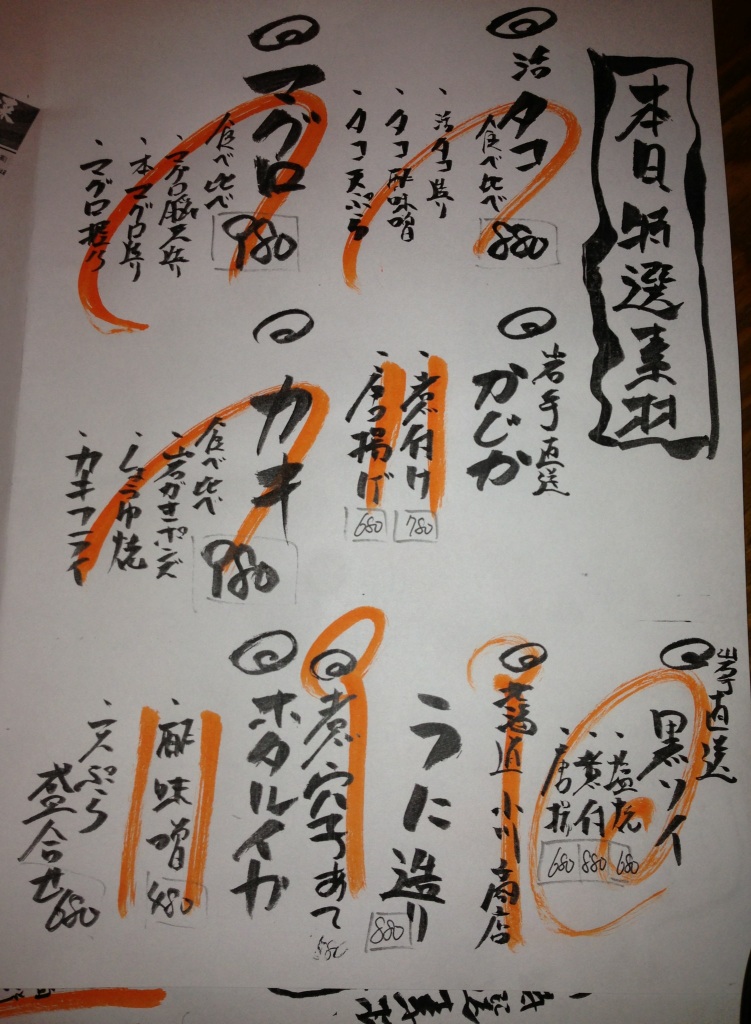 本日特選素材
活タコ
食べ比べ
880
、活タコ造り
、タコ酢味噌
、タコ天ぷら
マグロ
食べ比べ
980
、マグロ脳天造り
、本マグロ造り
、マグロ握り
岩手直送
かじか
、煮付け
780
、唐揚げ
680
カキ
食べ比べ
980
、岩がきポンズ
、しょうゆ焼
、カキフライ
岩手直送
黒ソイ
、塩焼
680
、煮付
880
、唐揚
680
小川商店
うに造り
880
煮穴子あて
580
ホタルイカ
、酢味噌
480
、天ぷら
盛合せ
680